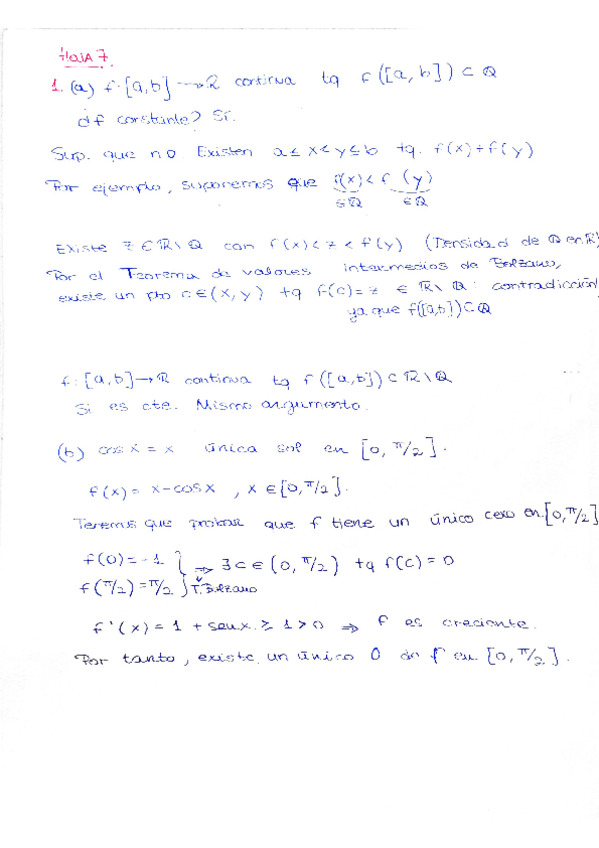 HOJA 7
1. (a) f: [a,b] → ℝ continua tq f([a,b]) ⊂ ℚ
¿f constante? Sí.
Sup. que no Existen a ≤ x < y ≤ b tq. f(x) ≠ f(y)
Por ejemplo, suponemos que f(x) < f(y)
∈ℚ ∈ℚ
Existe z ∈ ℝ\ℚ con f(x) < z < f(y) (Densidad de ℚ en ℝ)
Por el Teorema de valores intermedios de Bolzano,
existe un pto c ∈ (x,y) tq f(c) = z ∈ ℝ\ℚ : contradicción
ya que f([a,b]) ⊂ ℚ
f: [a,b] → ℝ continua tq f([a,b]) ⊂ ℝ\ℚ
Si es cte. Mismo argumento.
(b) cos x = x única sol en [0, π/2].
f(x) = x - cos x , x ∈ [0, π/2].
Tenemos que probar que f tiene un único cero en [0, π/2]
f(0) = -1 } ⇒ ∃ c ∈ (0, π/2) tq f(c) = 0
f(π/2) = π/2 } T. Bolzano
f'(x) = 1 + sen x ≥ 1 > 0 ⇒ f es creciente.
Por tanto, existe un único 0 de f en [0, π/2].